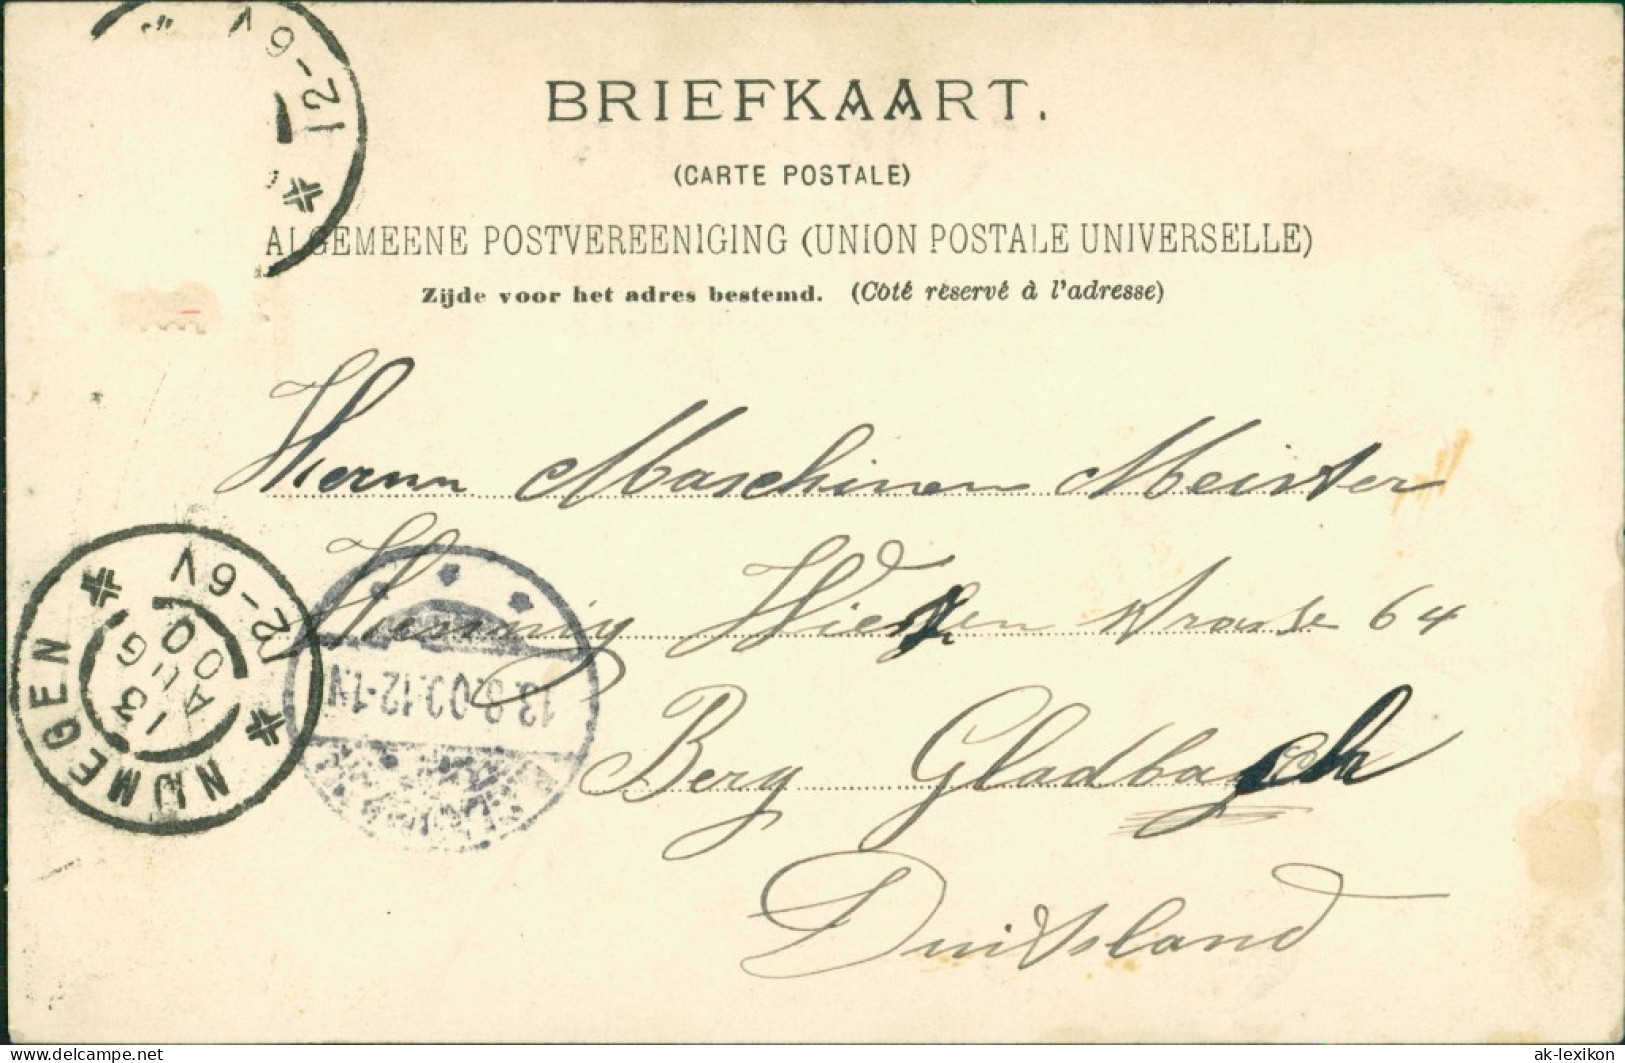 12-6V
BRIEFKAART.
(CARTE POSTALE)
ALGEMEENE POSTVEREENIGING (UNION POSTALE UNIVERSELLE)
Zijde voor het adres bestemd. (Côté réservé à l'adresse)
Herrn Maschinen Meister
Wiesen strasse 64
Berg Gladbach
Duitsland
NIJMEGEN
12-6V
13 AUG 00
13.8.00.12-1N
delcampe.net
ak-lexikon